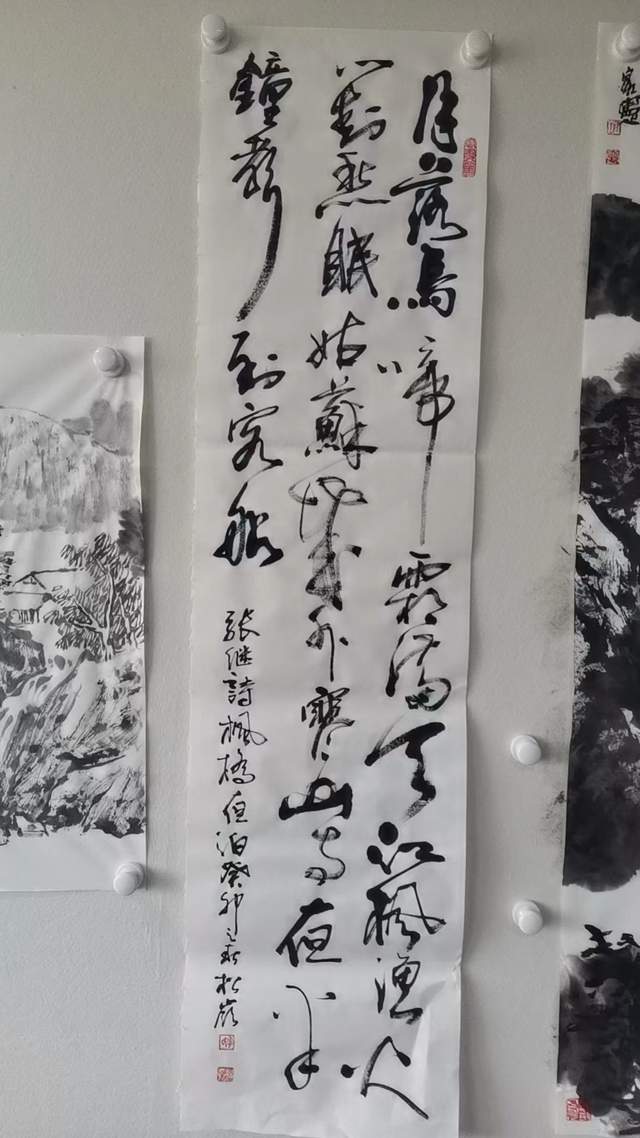 月落烏啼霜滿天江楓漁火
對愁眠姑蘇城外寒山寺夜半
鐘聲到客船
张继詩楓橋夜泊癸卯之秋松